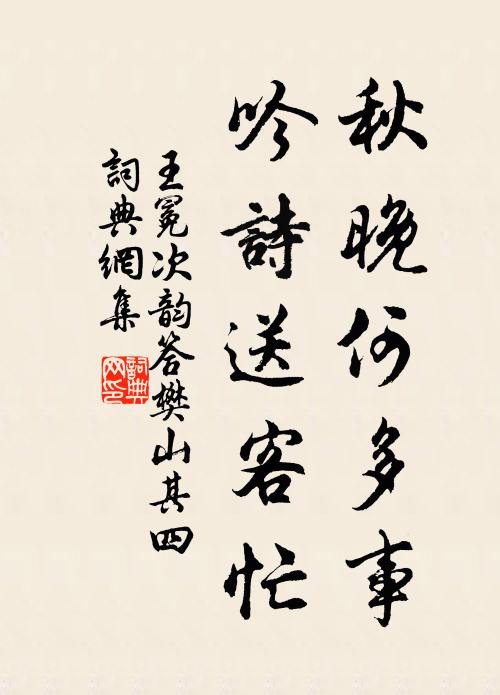 秋晚何多事
吟詩送客忙
王冕次韵答樊山其四
詞典網集
詞典
网印